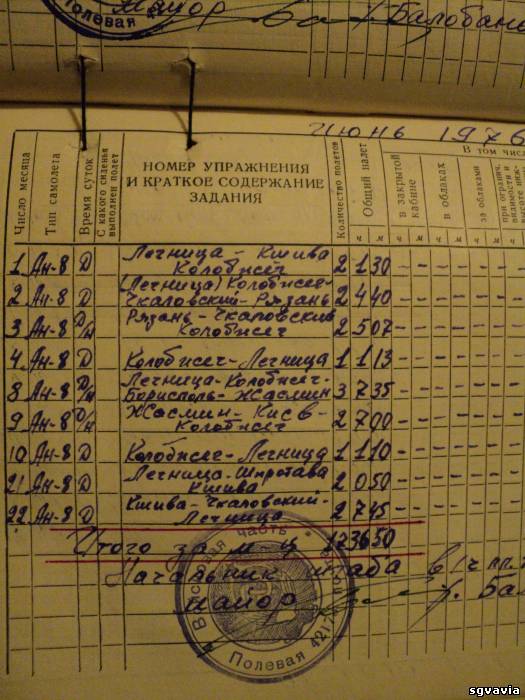 майор Балобан
Полевая 42
Июнь 1976
Число месяца
Тип самолета
Время суток
С какого сиденья выполнен полет
НОМЕР УПРАЖНЕНИЯ
И КРАТКОЕ СОДЕРЖАНИЕ
ЗАДАНИЯ
Количество полетов
Общий налет
В том числе
в закрытой кабине
в облаках
за облаками
при огранич. видимости и
ч м ч м ч м ч м
1 Ан-8 Д Легница - Кшива Колобжег 2 1 30 - - - - - -
2 Ан-8 Д (Легница) Колобжег- Чкаловский-Рязань 2 4 40 - - - - - -
3 Ан-8 Д/Н Рязань-Чкаловский Колобжег 2 5 07 - - - - - -
4 Ан-8 Д Колобжег-Легница 1 1 13 - - - - - -
8 Ан-8 Д/Н Легница-Колобжег- Борисполь-Жасмин 3 7 35 - - - - - -
9 Ан-8 Д/Н Жасмин-Киев- Колобжег 2 7 00 - - - - - -
10 Ан-8 Д Колобжег-Легница 1 1 10 - - - - - -
21 Ан-8 Д Легница-Шпротава Кшива 2 0 50 - - - - - -
22 Ан-8 Д Кшива-Чкаловский- Легница 2 7 45 - - - - - -
Итого за м-ц 17 36 50
Начальник штаба в/ч пп
майор Ба
Войсковая часть
Полевая 42
sgvavia